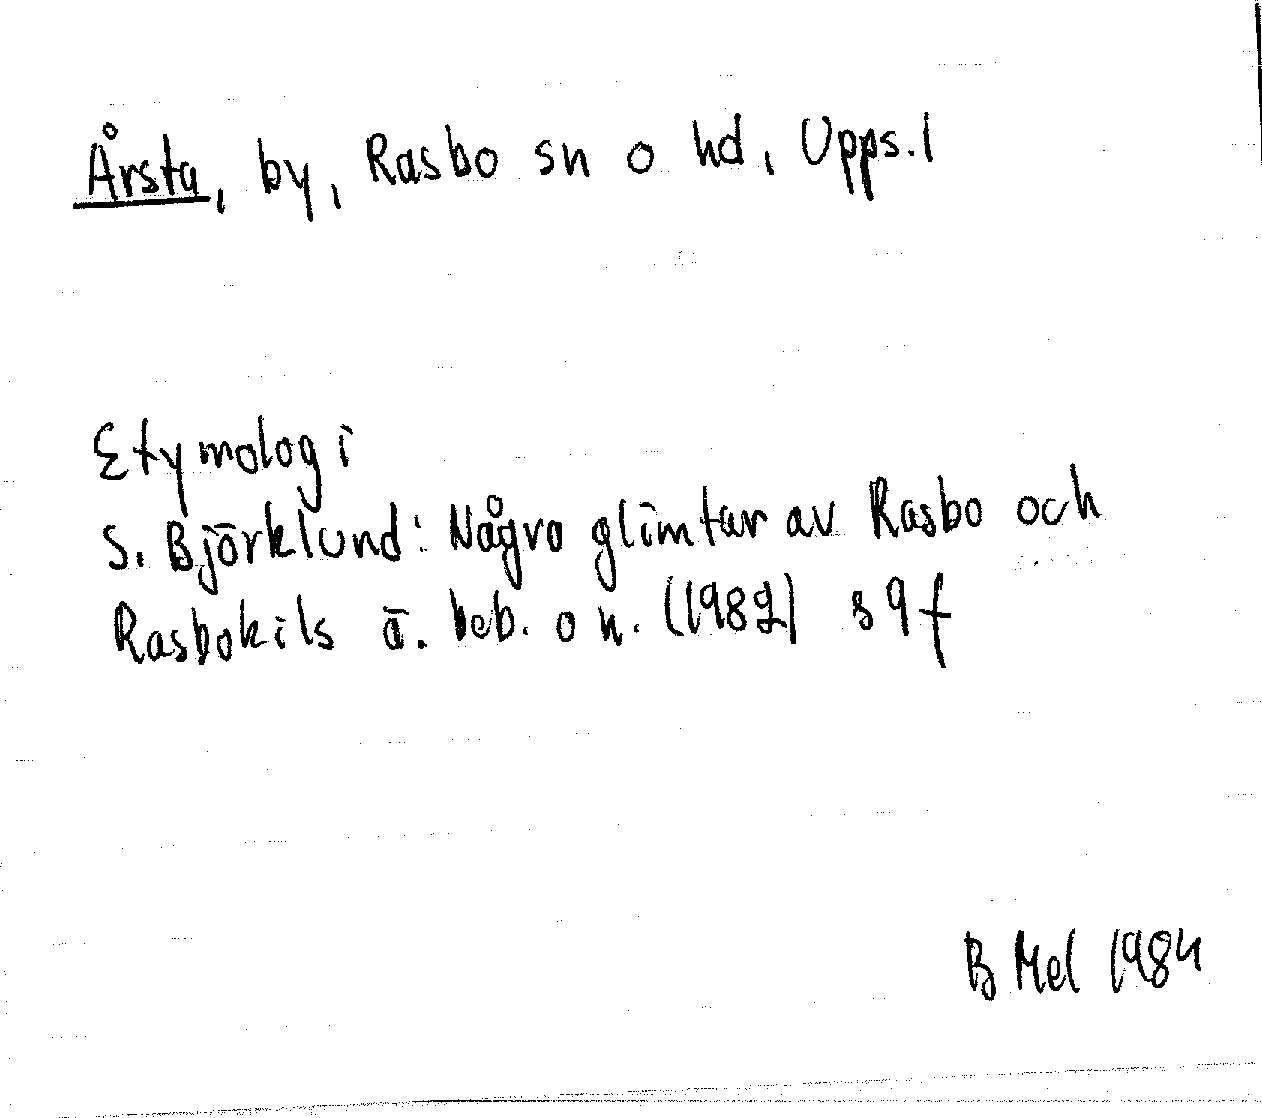 Årsta, by, Rasbo sn o hd, Upps. l
Etymologi
S. Björklund: Några glimtar av Rasbo och
Rasbokils ä. beb. o n. (1982) s 9 f
B Mel 1984